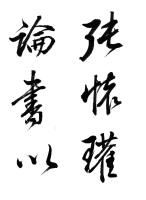 张怀瓘
論書以